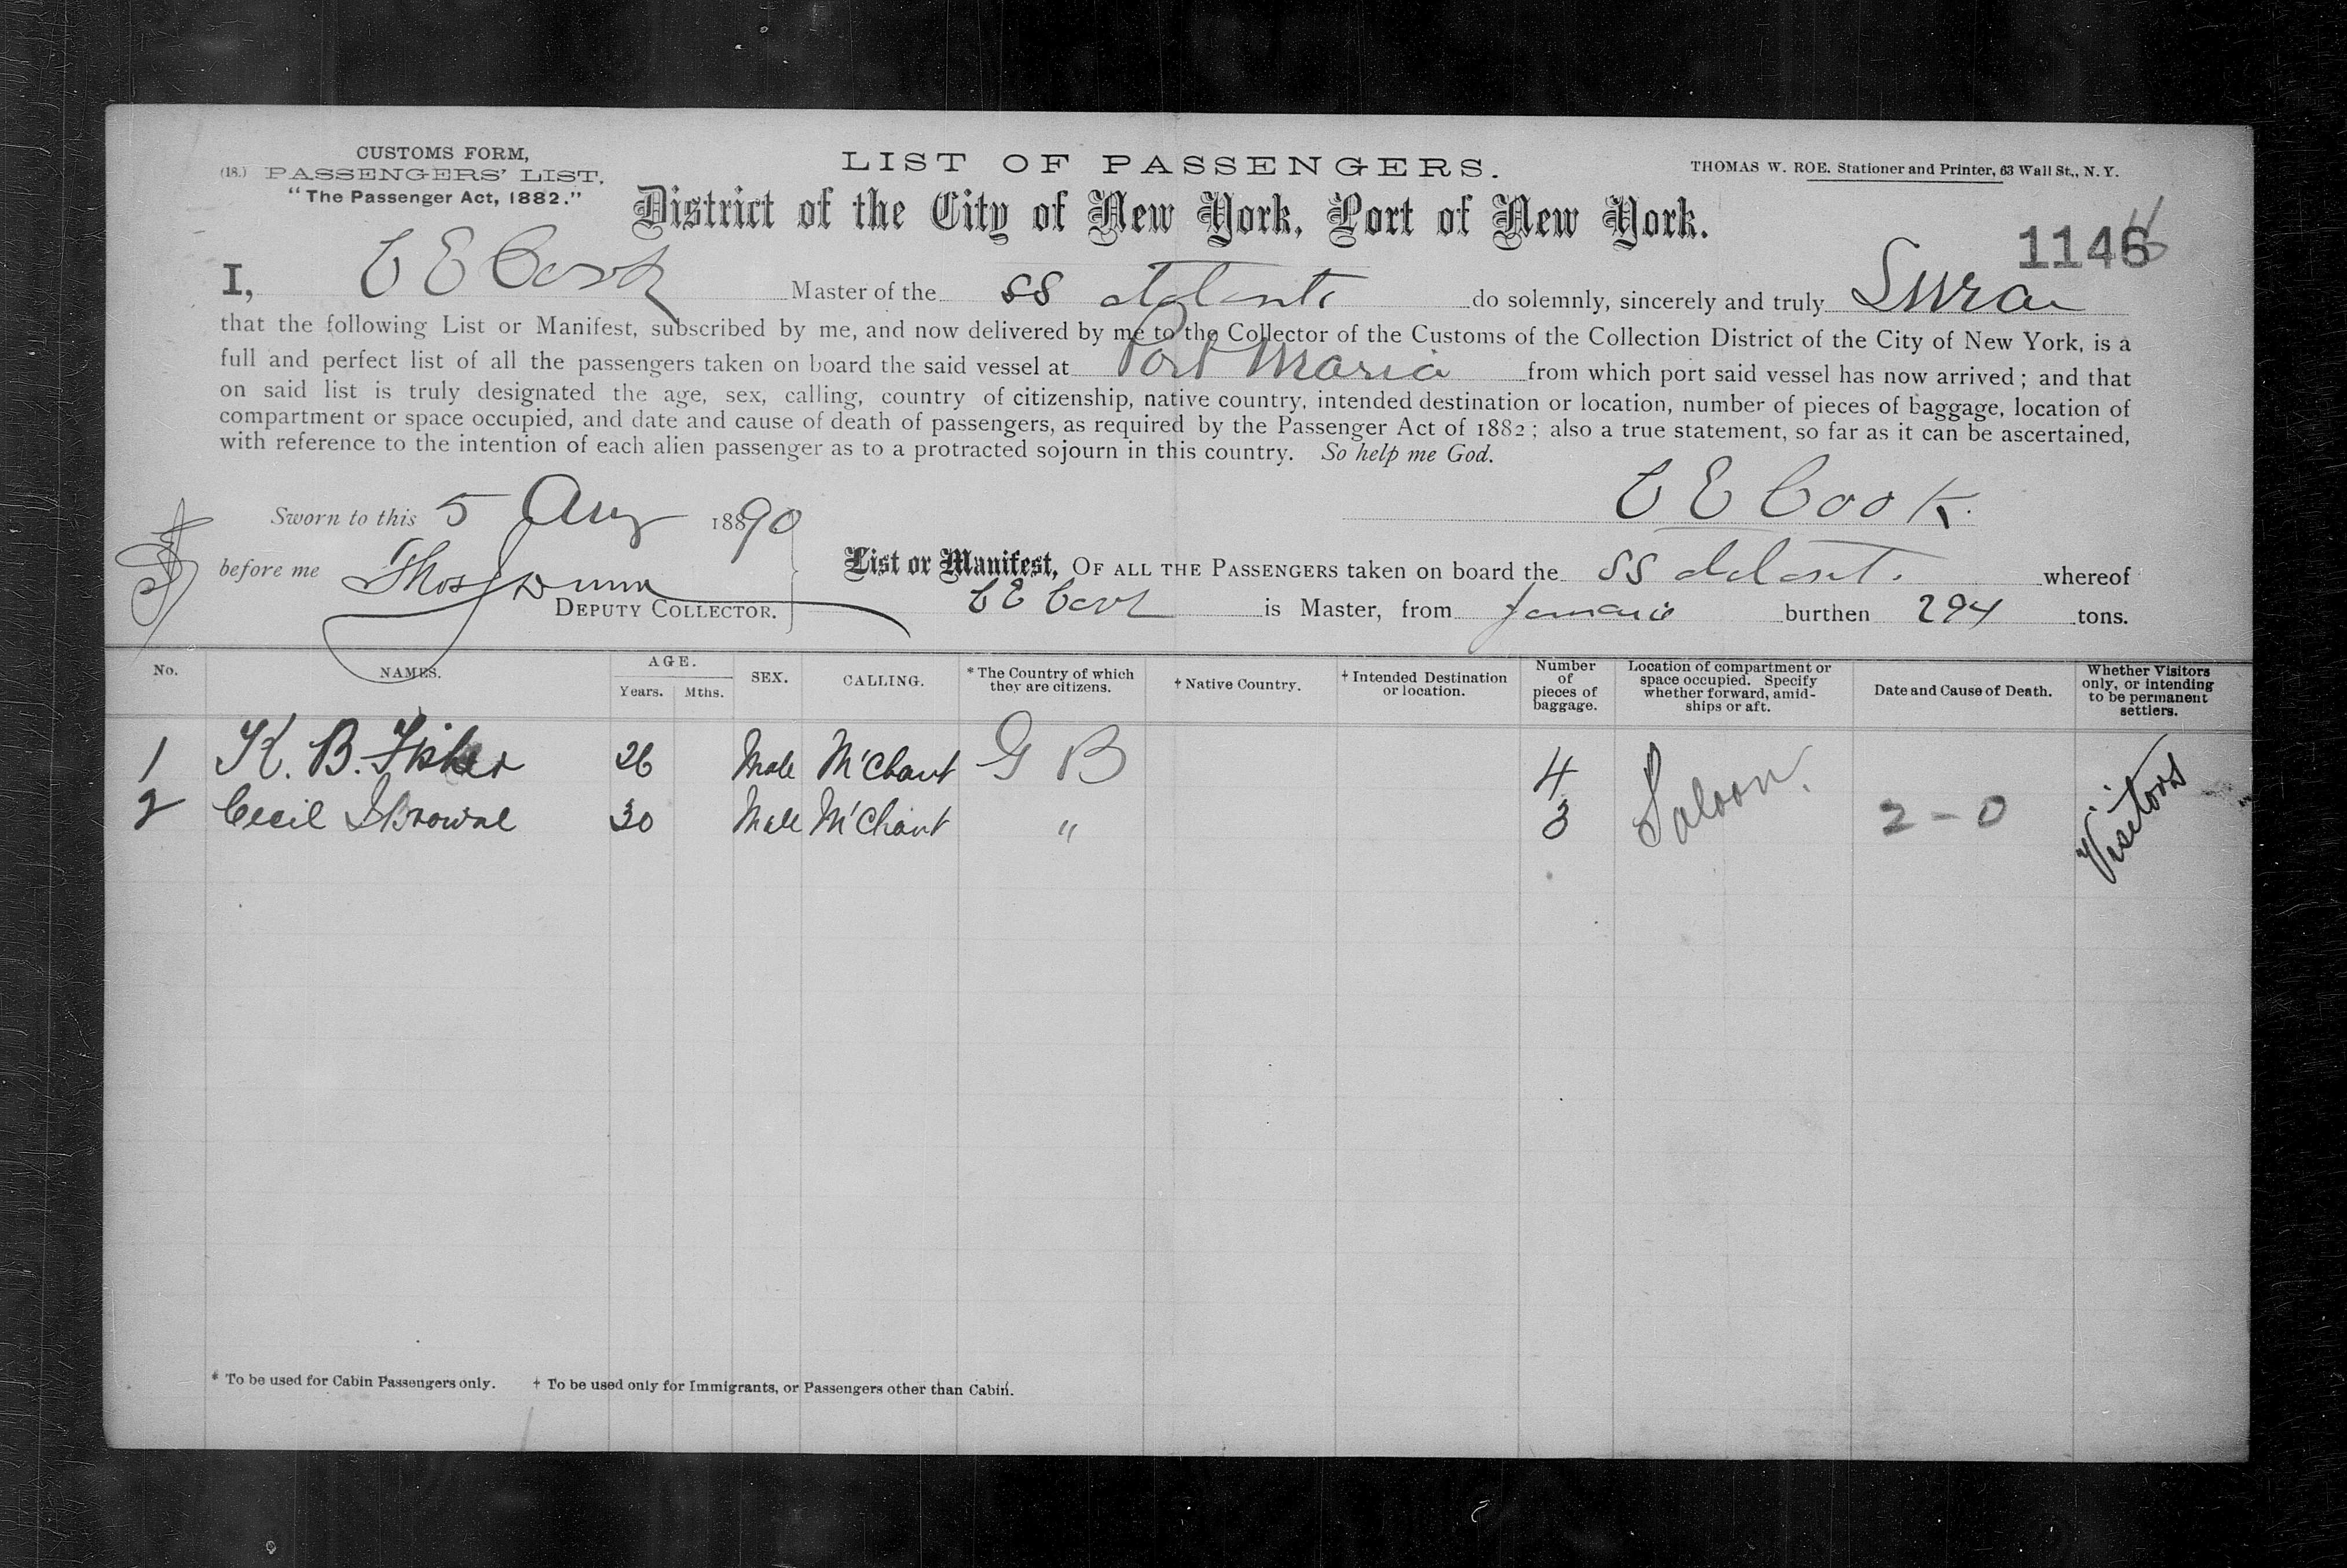 CUSTOMS FORM,
(18.) PASSENGERS' LIST,
"The Passenger Act, 1882."
LIST OF PASSENGERS.
THOMAS W. ROE. Stationer and Printer, 63 Wall St., N. Y.
District of the City of New York, Port of New York.
1146
I, C E Cook Master of the SS do solemnly, sincerely and truly Swear
that the following List or Manifest, subscribed by me, and now delivered by me to the Collector of the Customs of the Collection District of the City of New York, is a
full and perfect list of all the passengers taken on board the said vessel at Port Maria from which port said vessel has now arrived; and that
on said list is truly designated the age, sex, calling, country of citizenship, native country, intended destination or location, number of pieces of baggage, location of
compartment or space occupied, and date and cause of death of passengers, as required by the Passenger Act of 1882; also a true statement, so far as it can be ascertained,
with reference to the intention of each alien passenger as to a protracted sojourn in this country. So help me God.
C E Cook
Sworn to this 5 Aug 1890
before me Thos Dunn
DEPUTY COLLECTOR.
List or Manifest, OF ALL THE PASSENGERS taken on board the SS whereof
C E Cook is Master, from Jamaica burthen 294 tons.
No. NAMES. AGE. Years. Mths. SEX. CALLING. * The Country of which they are citizens. † Native Country. † Intended Destination or location. Number of pieces of baggage. Location of compartment or space occupied. Specify whether forward, amidships or aft. Date and Cause of Death. Whether Visitors only, or intending to be permanent settlers.
1 K. B. Fisher 26 Male M'Chant G B 4 Saloon. Visitors
2 Cecil Browne 30 Male M'Chant " 3 2-0
* To be used for Cabin Passengers only. † To be used only for Immigrants, or Passengers other than Cabin.